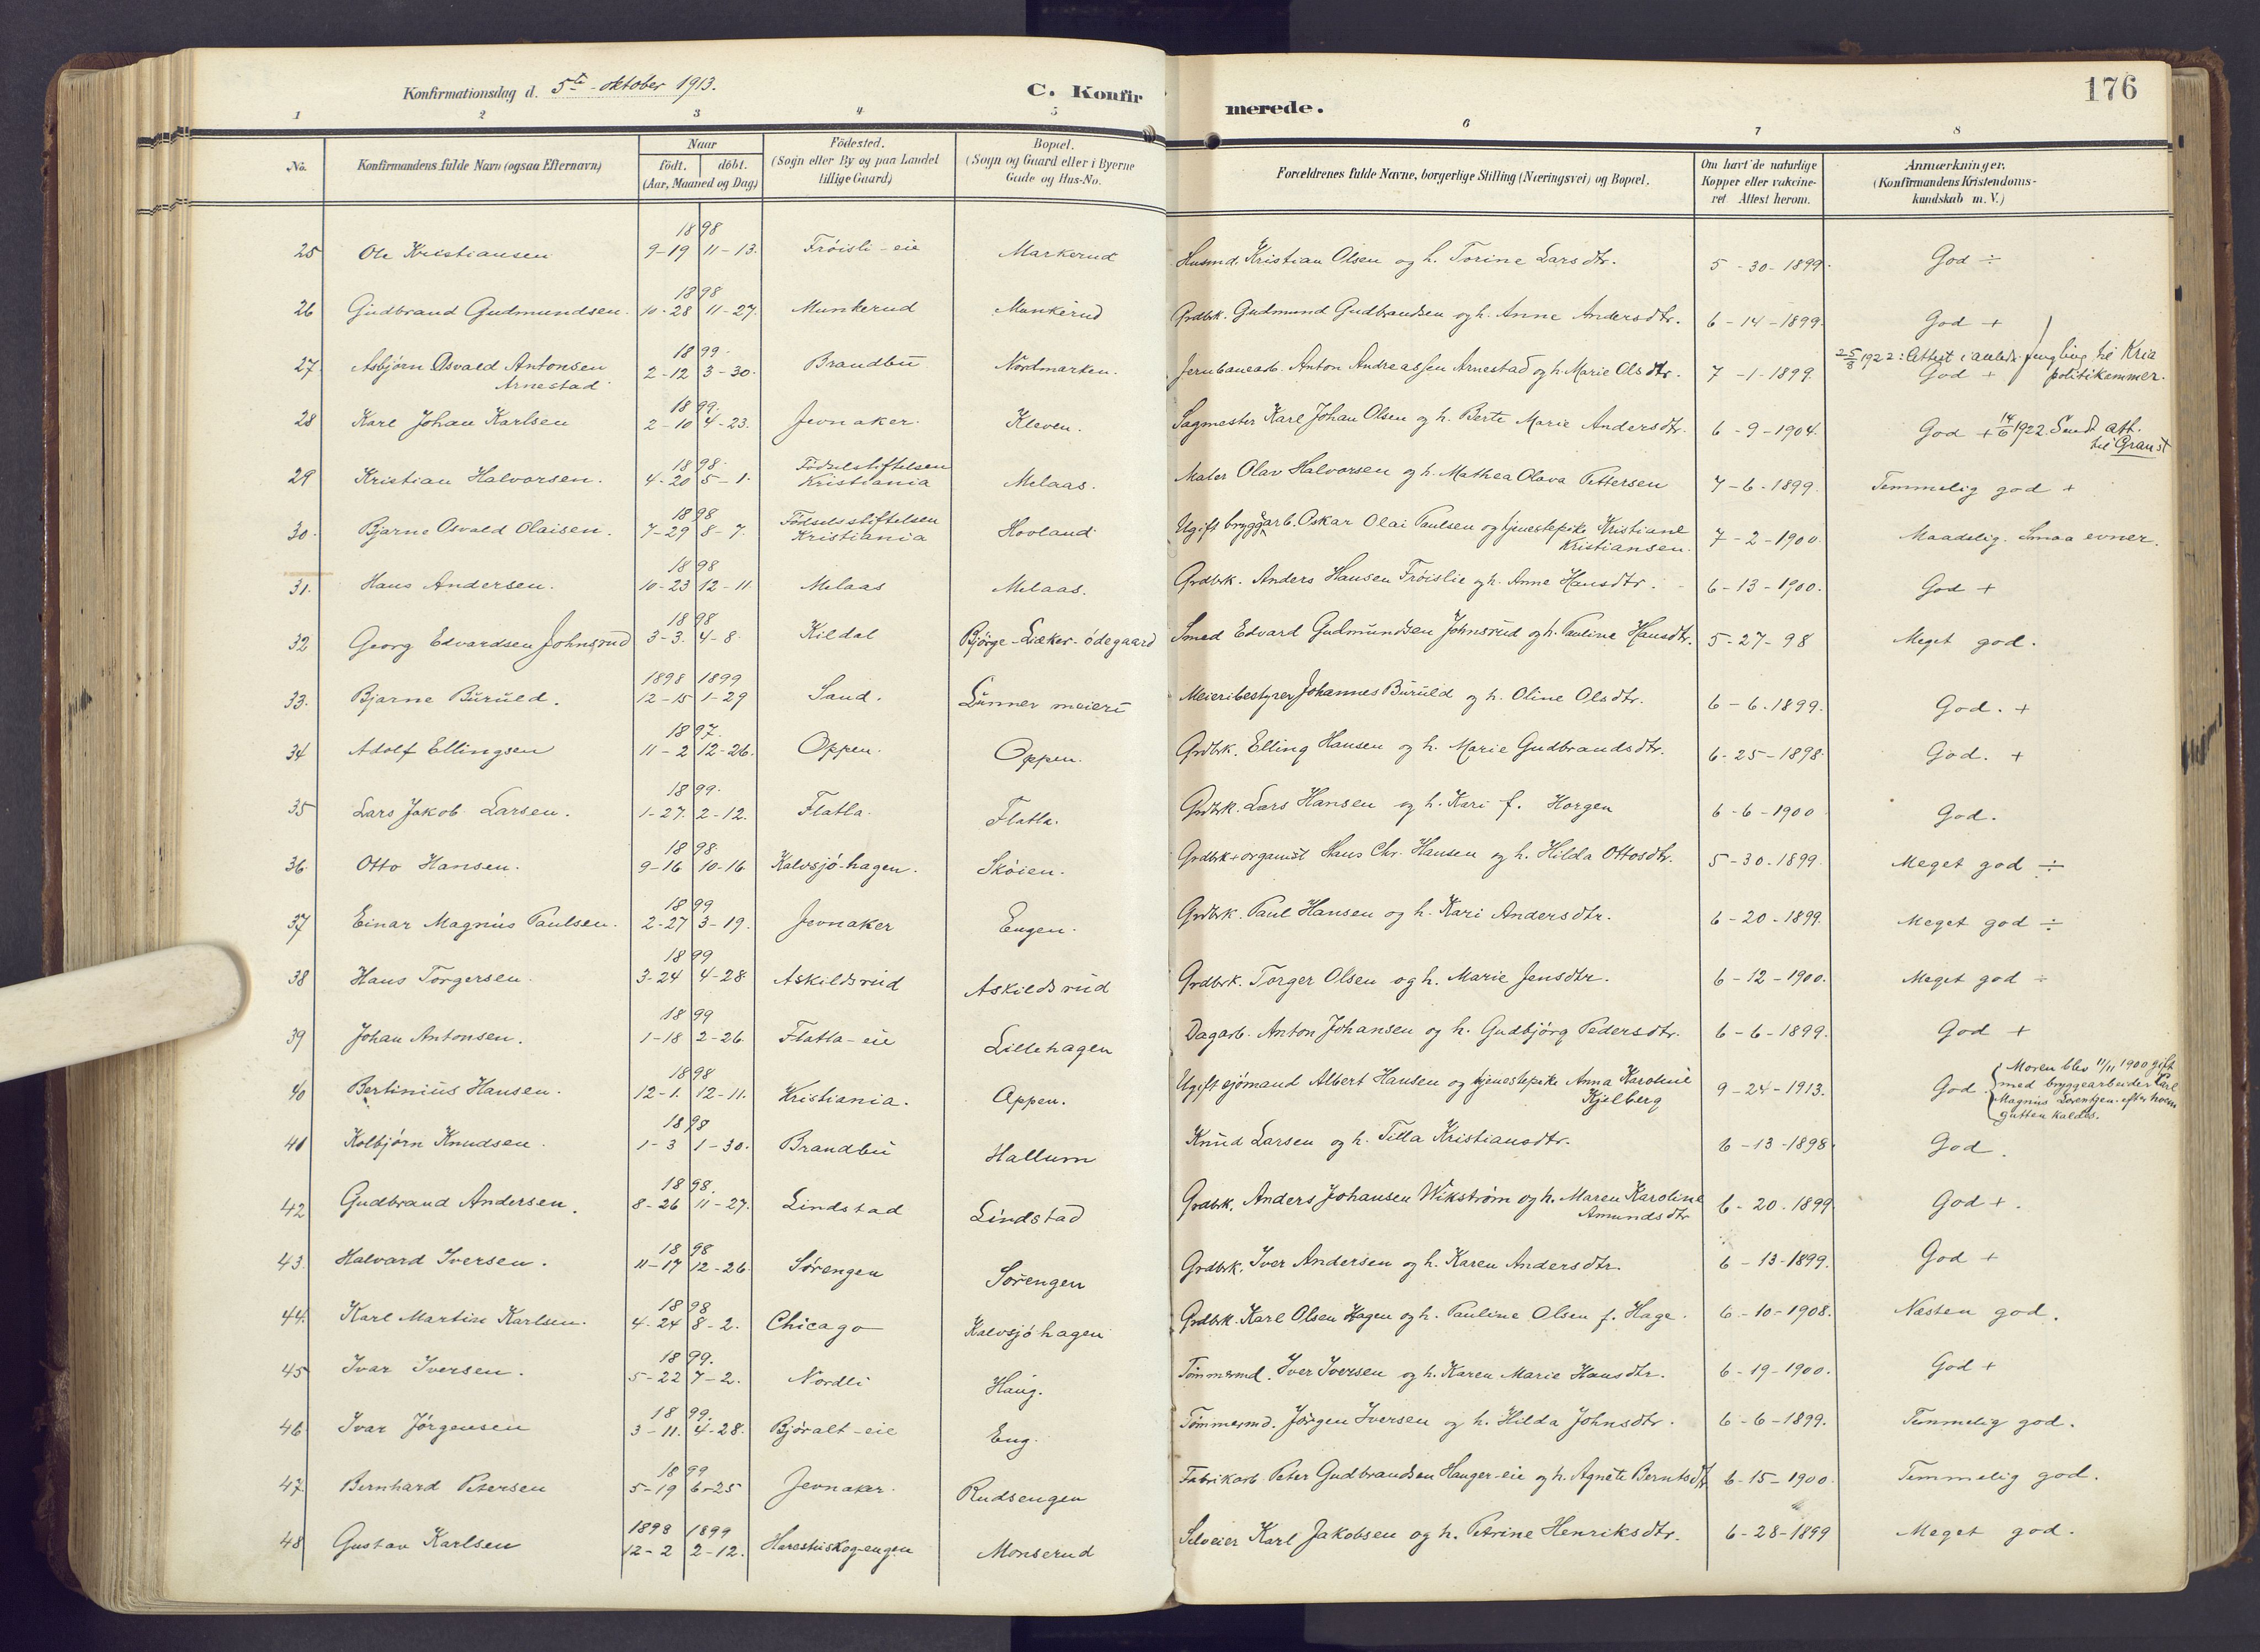 Konfirmationsdag d. 5te oktober 1913. C. Konfir merede. 176
1 2 3 4 5 6 7 8
No. Konfirmandens fulde Navn (ogsaa Efternavn) Naar födt. döbt. (Aar, Maaned og Dag) Födested. (Sogn eller By og paa Landet tillige Gaard) Bopæl. (Sogn og Gaard eller i Byerne Gade og Hus-No. Forældrenes fulde Navne, borgerlige Stilling (Næringsvei) og Bopæl. Om havt de naturlige Kopper eller vakcine- ret Attest herom. Anmærkninger. (Konfirmandens Kristendoms- kundskab m. V.)
25 Ole Kristiansen 1898 9-19 11-13. Fröisli-eie Markerud Husmd. Kristian Olsen og h. Torine Larsdtr. 5-30-1899. God ÷
26 Gudbrand Gudmundsen. 1898 10-28 11-27. Munkerud Munkerud Grdbrk. Gudmund Gudbrandsen og h. Anne Andersdtr. 6-14-1899. God +
27. Asbjörn Osvald Antonsen Arnestad 1899. 2-12 3-30. Brandbu Nordmarken. Jernbanearb. Anton Andreassen Arnestad og h. Marie Olsdtr. 7-1-1899. God + 25/8 1922: Attest i anledn. fengling til Kria politikammer.
28 Karl Johan Karlsen 1899. 2-10 4-23. Jevnaker. Kleven. Sagmester Karl Johan Olsen og h. Berte Marie Andersdtr. 6-9-1904. God + 14/6 1922. Sendt att. til Gran st
29 Kristian Halvorsen. 1898. 4-20 5-1. Födselsstiftelsen Kristiania Melaas. Maler Olav Halvorsen og h. Mathea Olava Pettersen 7-6-1899. Temmelig god +
30. Bjarne Osvald Olaisen. 1898 7-29 8-7. Födselsstiftelsen Kristiania Hovland Ugift bryggarb. Oskar Olai Paulsen og tjenestepike Kristiane Kristiansen. 7-2-1900. Maadelig. Smaa evner.
31. Hans Andersen. 1898 10-23 12-11. Melaas Melaas. Grdbrk. Anders Hansen Fröislie og h. Anne Hansdtr. 6-13-1900. God +
32 Georg Edvardsen Johnsrud 1898 3-3. 4-8. Kildal Björge-Læker-ödegaard Smed Edvard Gudmundsen Johnsrud og h. Pauline Hansdtr. 5-27-98 Meget god.
33. Bjarne Buruld. 1898 1899 12-15 1-29 Sand. Lunner meieri Meieribestyrer Johannes Buruld og h. Oline Olsdtr. 6-6-1899. God. +
34 Adolf Ellingsen 1897. 11-2 12-26. Oppen. Oppen. Grdbrk. Elling Hansen og h. Marie Gudbrandsdtr. 6-25-1898. God. +
35 Lars Jakob Larsen. 1899. 1-27. 2-12. Flatla. Flatla. Grdbrk. Lars Hansen og h. Kari f. Horgen 6-6-1900 God.
36. Otto Hansen. 1898. 9-16 10-16 Kalvsjö-hagen. Sköien. Grdbrk + organist Hans Chr. Hansen og h. Hilda Ottosdtr. 5-30-1899. Meget god ÷
37 Einar Magnus Paulsen. 1899 2-27 3-19. Jevnaker Engen. Grdbrk. Paul Hansen og h. Kari Andersdtr. 6-20-1899. Meget god ÷
38 Hans Torgersen. 1899 3-24 4-28 Askildsrud Askildsrud Grdbrk. Torger Olsen og h. Marie Jensdtr. 6-12-1900. Meget god ÷
39 Johan Antonsen. 1899 1-18 2-26. Flatla-eie Lillehagen Dagarb. Anton Johansen og h. Gudbjörg Pedersdtr. 6-6-1899. God +
40 Bertinius Hansen. 1898 12-1. 12-11. Kristiania. Oppen. Ugift sjömand Albert Hansen og tjenestepike Anna Karoline Kjelberg 9-24-1913. God. Moren blev 11/11 1900 gift med bryggearbeider Carl Magnus Lorentzen. efter hvem gutten kaldes.
41 Kolbjörn Knudsen. 1898 1-3 1-30. Brandbu Hallum Knud Larsen og h. Tilla Kristiansdtr. 6-13-1898. God.
42 Gudbrand Andersen. 1898. 8-26 11-27. Lindstad Lindstad Grdbrk. Anders Johansen Wikström og h. Maren Karoline Amundsdtr 6-20-1899 God +.
43. Halvard Iversen. 1898 11-17 12-26. Sörengen Sörengen Grdbrk. Iver Andersen og h. Karen Andersdtr. 6-13-1899. God +
44. Karl Martin Karlsen. 1898 4-24 8-2. Chicago Kalvsjöhagen Grdbrk. Karl Olsen Hagen og h. Pauline Olsen f. Hage. 6-10-1908. Næsten god.
45 Ivar Iversen. 1899. 5-22 7-2. Nordli Haug. Tömmermd. Iver Iversen og h. Karen Marie Hansdtr. 6-19-1900. God +
46 Ivar Jörgensen 1899. 3-11. 4-28. Björalt-eie Eng. Tömmermd. Jörgen Iversen og h. Hilda Johnsdtr. 6-6-1899. Temmelig god.
47. Bernhard Petersen 1899 5-19 6-25 Jevnaker. Rudsengen Fabrikarb. Peter Gudbrandsen Hauger-eie og h. Agnete Berntsdtr 6-15-1900. Temmelig god.
48 Gustav Karlsen 1898 1899 12-2 2-12. Harestuskog-engen Monserud Selveier Karl Jakobsen og h. Petrine Henriksdtr. 6-28-1899 Meget god.